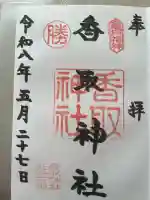 奉拝
香取神社
香取
神社
勝
令和八年五月二十七日